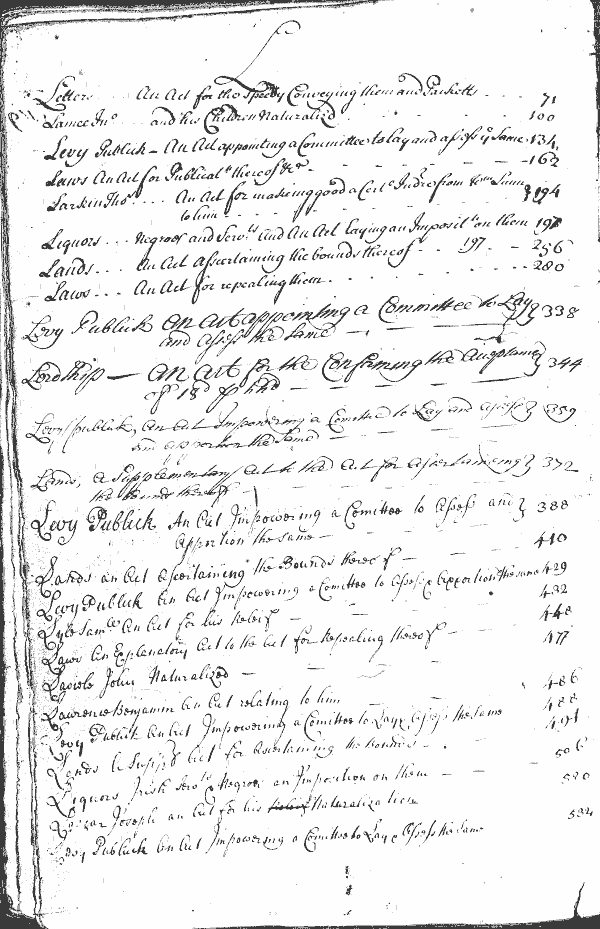 L
Letters . . . An Act for the Speedy Conveying them and Packetts . . . . 71
Lamee Jno . . . and his Children Naturalized . . . . 100
Levy Publick – An Act appointing a Committee to lay and assess ye Same 134
Laws An Act for Publicatn thereof &c . . . . 162
Larkin Thos . . . An Act for makeing good a Certn Indre from
to him . . . . } 194
Liquors . . . Negroes and Servts And An Act laying an Impositn on them 197
Lands . . . An Act Ascertaining the bounds thereof . . 197 . . 256
Laws . . . An Act for repealing them . . . . 280
Levy Publick An Act appointing a Committee to Lay
and assess the Same — } 338
Lordship — An Act for the Confirming the
of — } 344
Levy publick, an act Impowering a Comittee to Lay and assess
and apportion the Same — } 359
Lands, a Supplementary act to the Act for ascertaineing
the bounds thereof — } 372
Levy Publick An Act Impowering a Comittee to Assess and
Apportion the same — } 388
Lands an Act Ascertaining the Bounds thereof — 410
Levy Publick An Act Impowering a Comittee to Assess & Apportion the same 429
Lyle Saml An Act for his Releif — 432
Laws An Explanatory Act to the Act for Repealing thereof — 448
John Naturalized — 477
Laurence Benjamin An Act relating to him 486
Levy Publick An Act Impowering a Comittee to Lay & Assess the same 488
Lands A Suppr Act for Ascertaining the bounds — 491
Liquors Irish Servts & Negroes an Imposition on them — 506
Joseph an Act for his Releif Naturalization 520
Levy Publick An Act Impowering a Comittee to Lay & Assess the Same 534